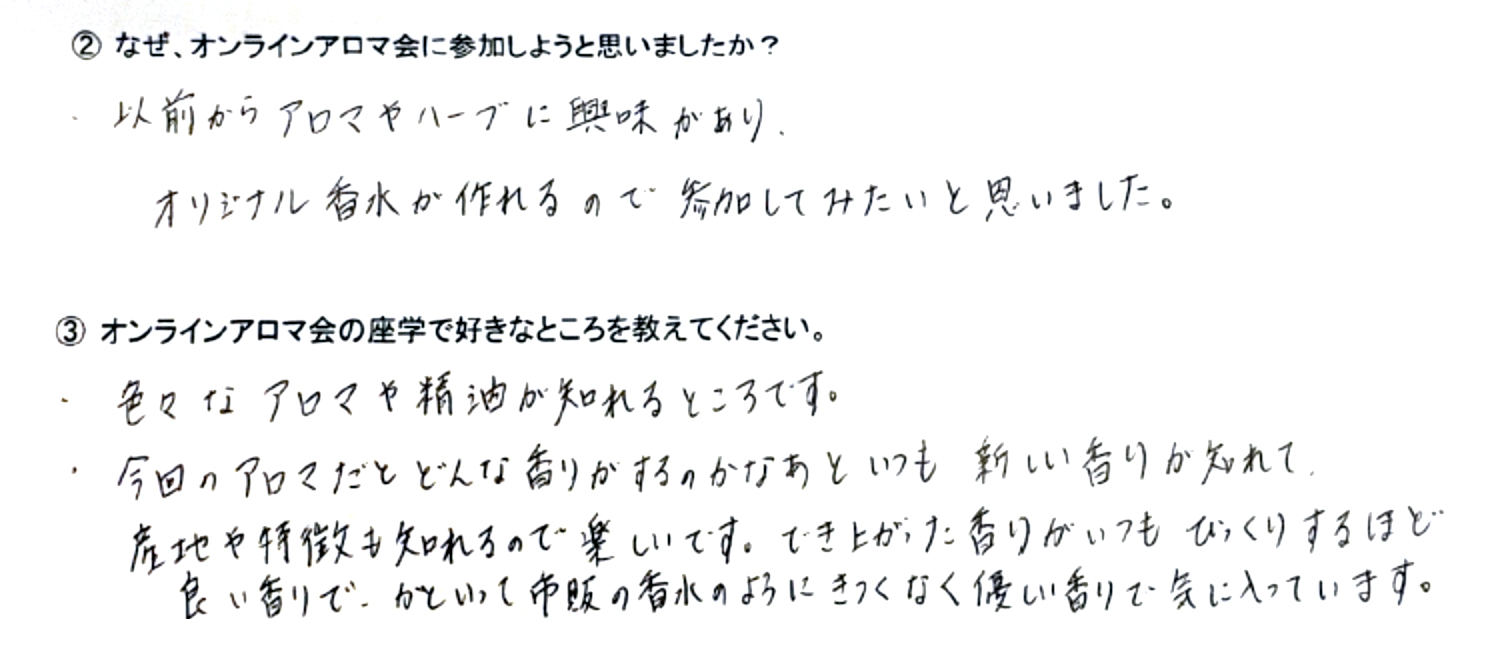 ② なぜ、オンラインアロマ会に参加しようと思いましたか？
・ 以前からアロマやハーブに興味があり、
オリジナル香水が作れるので参加してみたいと思いました。
③ オンラインアロマ会の座学で好きなところを教えてください。
・ 色々なアロマや精油が知れるところです。
・ 今回のアロマだとどんな香りがするのかなあといつも新しい香りが知れて、
産地や特徴も知れるので楽しいです。でき上がった香りがいつもびっくりするほど
良い香りで、かといって市販の香水のようにきつくなく優しい香りで気に入っています。